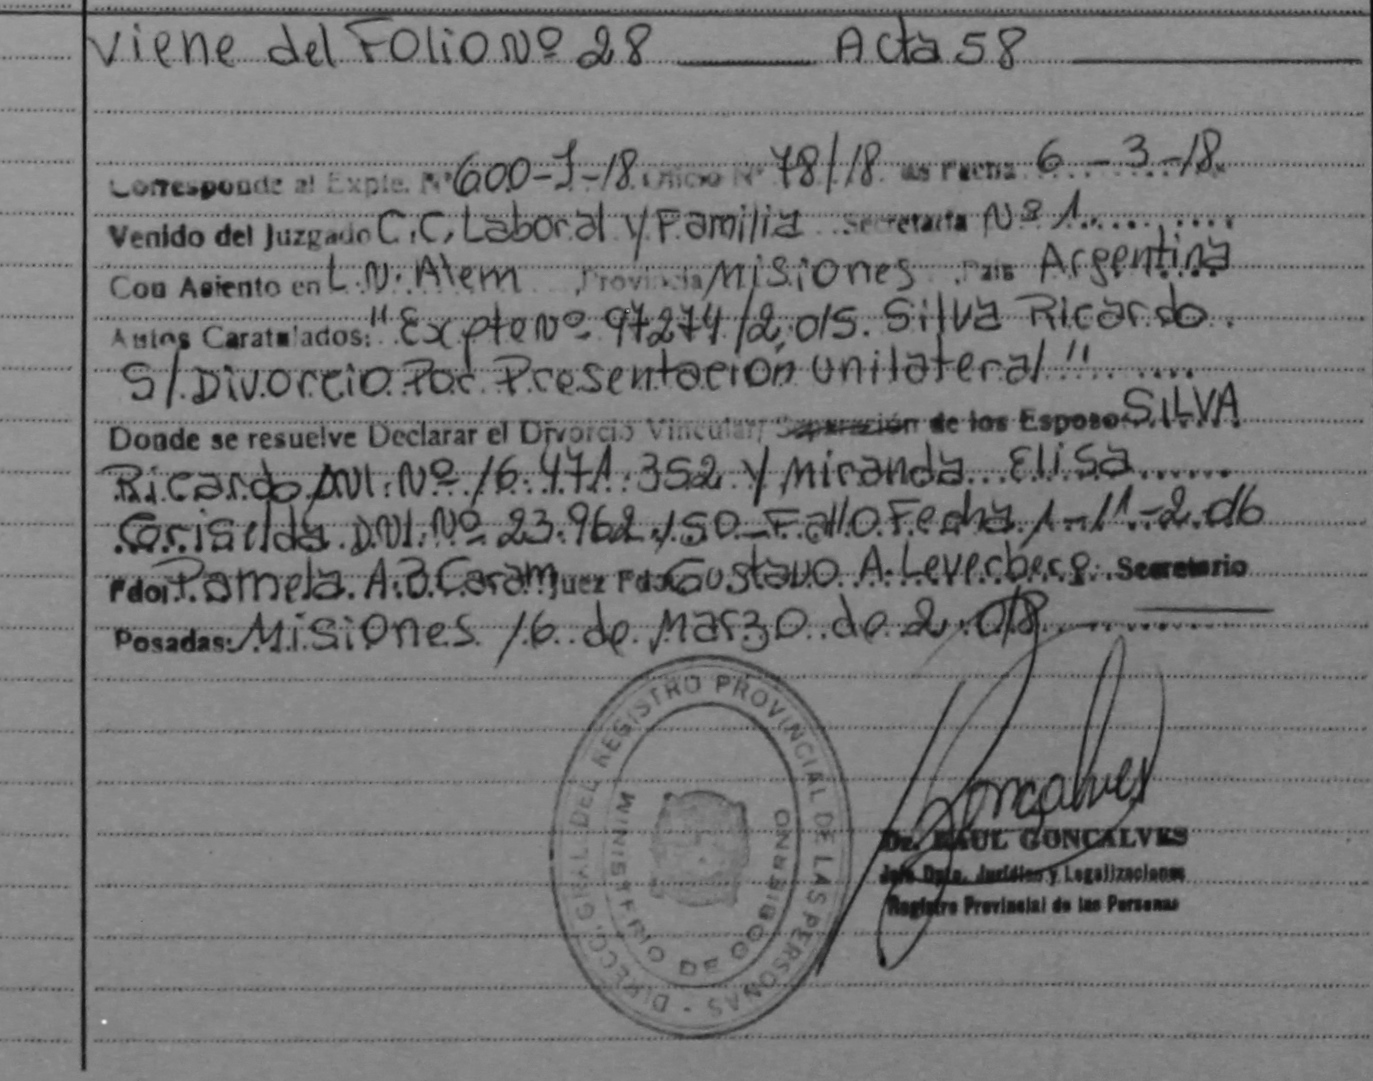 Viene del Folio Nº 28 ______ Acta 58 ______
Corresponde al Expte. Nº 600-J-18 Oficio Nº 78/18 de Fecha 6-3-18
Venido del Juzgado C.C. Laboral y Familia Secretaría Nº 1
Con Asiento en L.N. Alem Provincia Misiones País Argentina
Autos Caratulados: "Expte Nº 97274/2.015. Silva Ricardo
S/Divorcio Por Presentación Unilateral"
Donde se resuelve Declarar el Divorcio Vincular/ Separación de los Esposo SILVA
Ricardo DNI. Nº 16.471.352 y Miranda Elisa
Griselda DNI. Nº 23.962.150 - Fallo Fecha 1-11-2.016
Fdo: Pamela A.B. Caram Juez Fdo: Gustavo A. Leverberg. Secretario
Posadas: Misiones 16 de Marzo de 2.018
DIRECC. GRAL. DEL REGISTRO PROVINCIAL DE LAS PERSONAS -
MINISTERIO DE GOBIERNO
Goncalves
Dr. RAUL GONCALVES
Jefe Dpto. Jurídico y Legalizaciones
Registro Provincial de las Personas